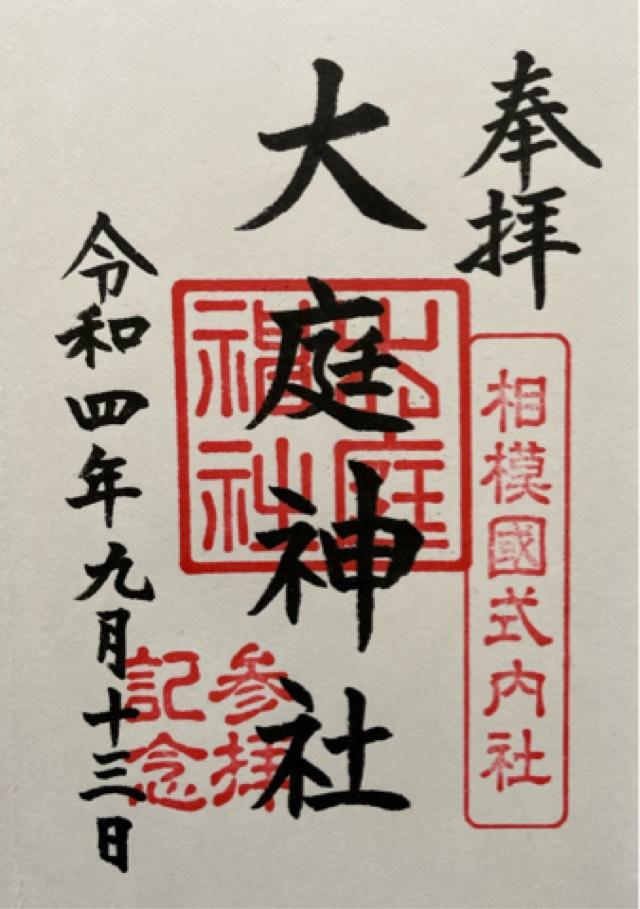 奉拝
相模國式内社
大庭神社
大庭
神社
参拝
記念
令和四年九月十三日